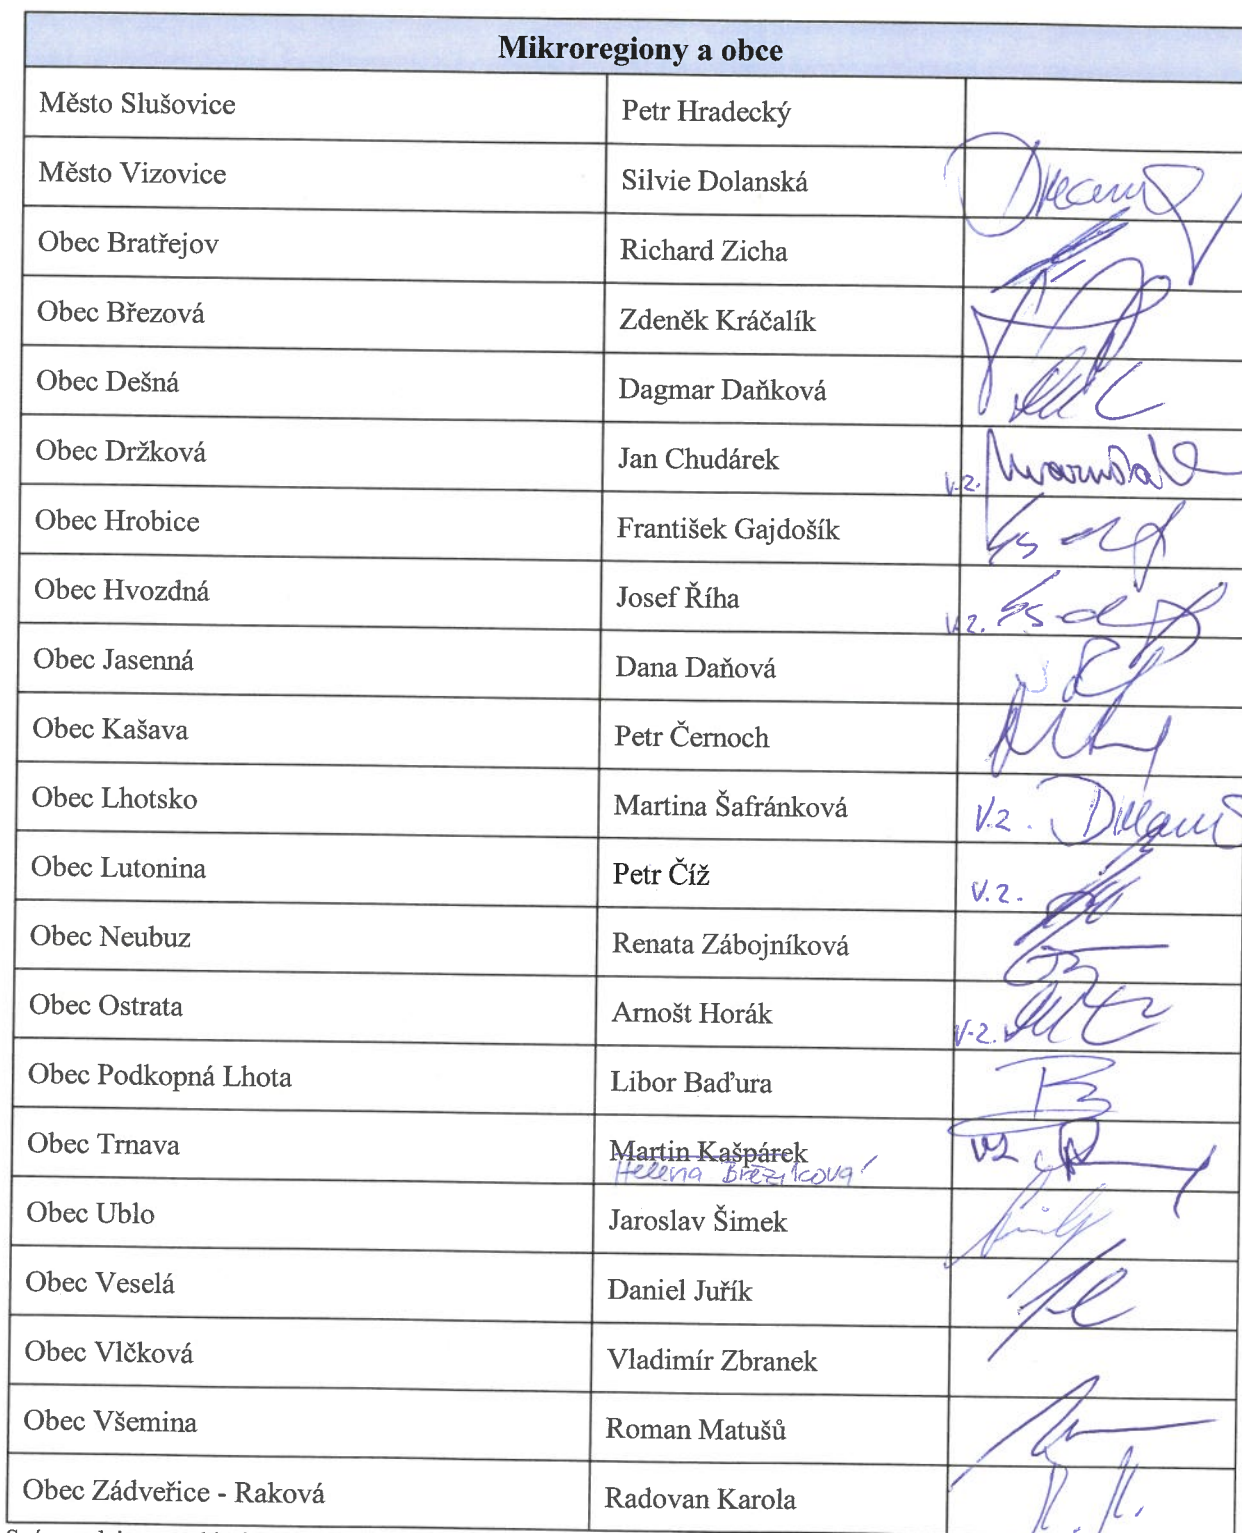 Mikroregiony a obce
Město Slušovice Petr Hradecký
Město Vizovice Silvie Dolanská
Obec Bratřejov Richard Zicha
Obec Březová Zdeněk Kráčalík
Obec Dešná Dagmar Daňková
Obec Držková Jan Chudárek v.z.
Obec Hrobice František Gajdošík
Obec Hvozdná Josef Říha v.z.
Obec Jasenná Dana Daňová
Obec Kašava Petr Černoch
Obec Lhotsko Martina Šafránková v.z.
Obec Lutonina Petr Číž v.z.
Obec Neubuz Renata Zábojníková
Obec Ostrata Arnošt Horák v.z.
Obec Podkopná Lhota Libor Baďura
Obec Trnava Martin Kašpárek vz
Helena Březíková
Obec Ublo Jaroslav Šimek
Obec Veselá Daniel Juřík
Obec Vlčková Vladimír Zbranek
Obec Všemina Roman Matušů
Obec Zádveřice - Raková Radovan Karola